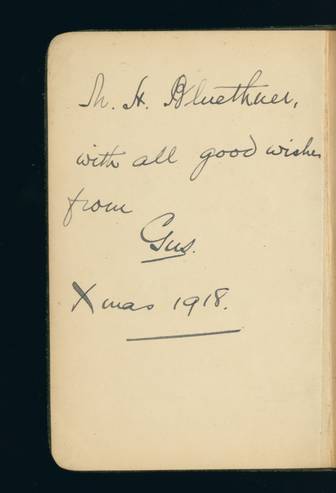 M. H. Bluethner,
with all good wishes
from
Gus.
Xmas 1918.